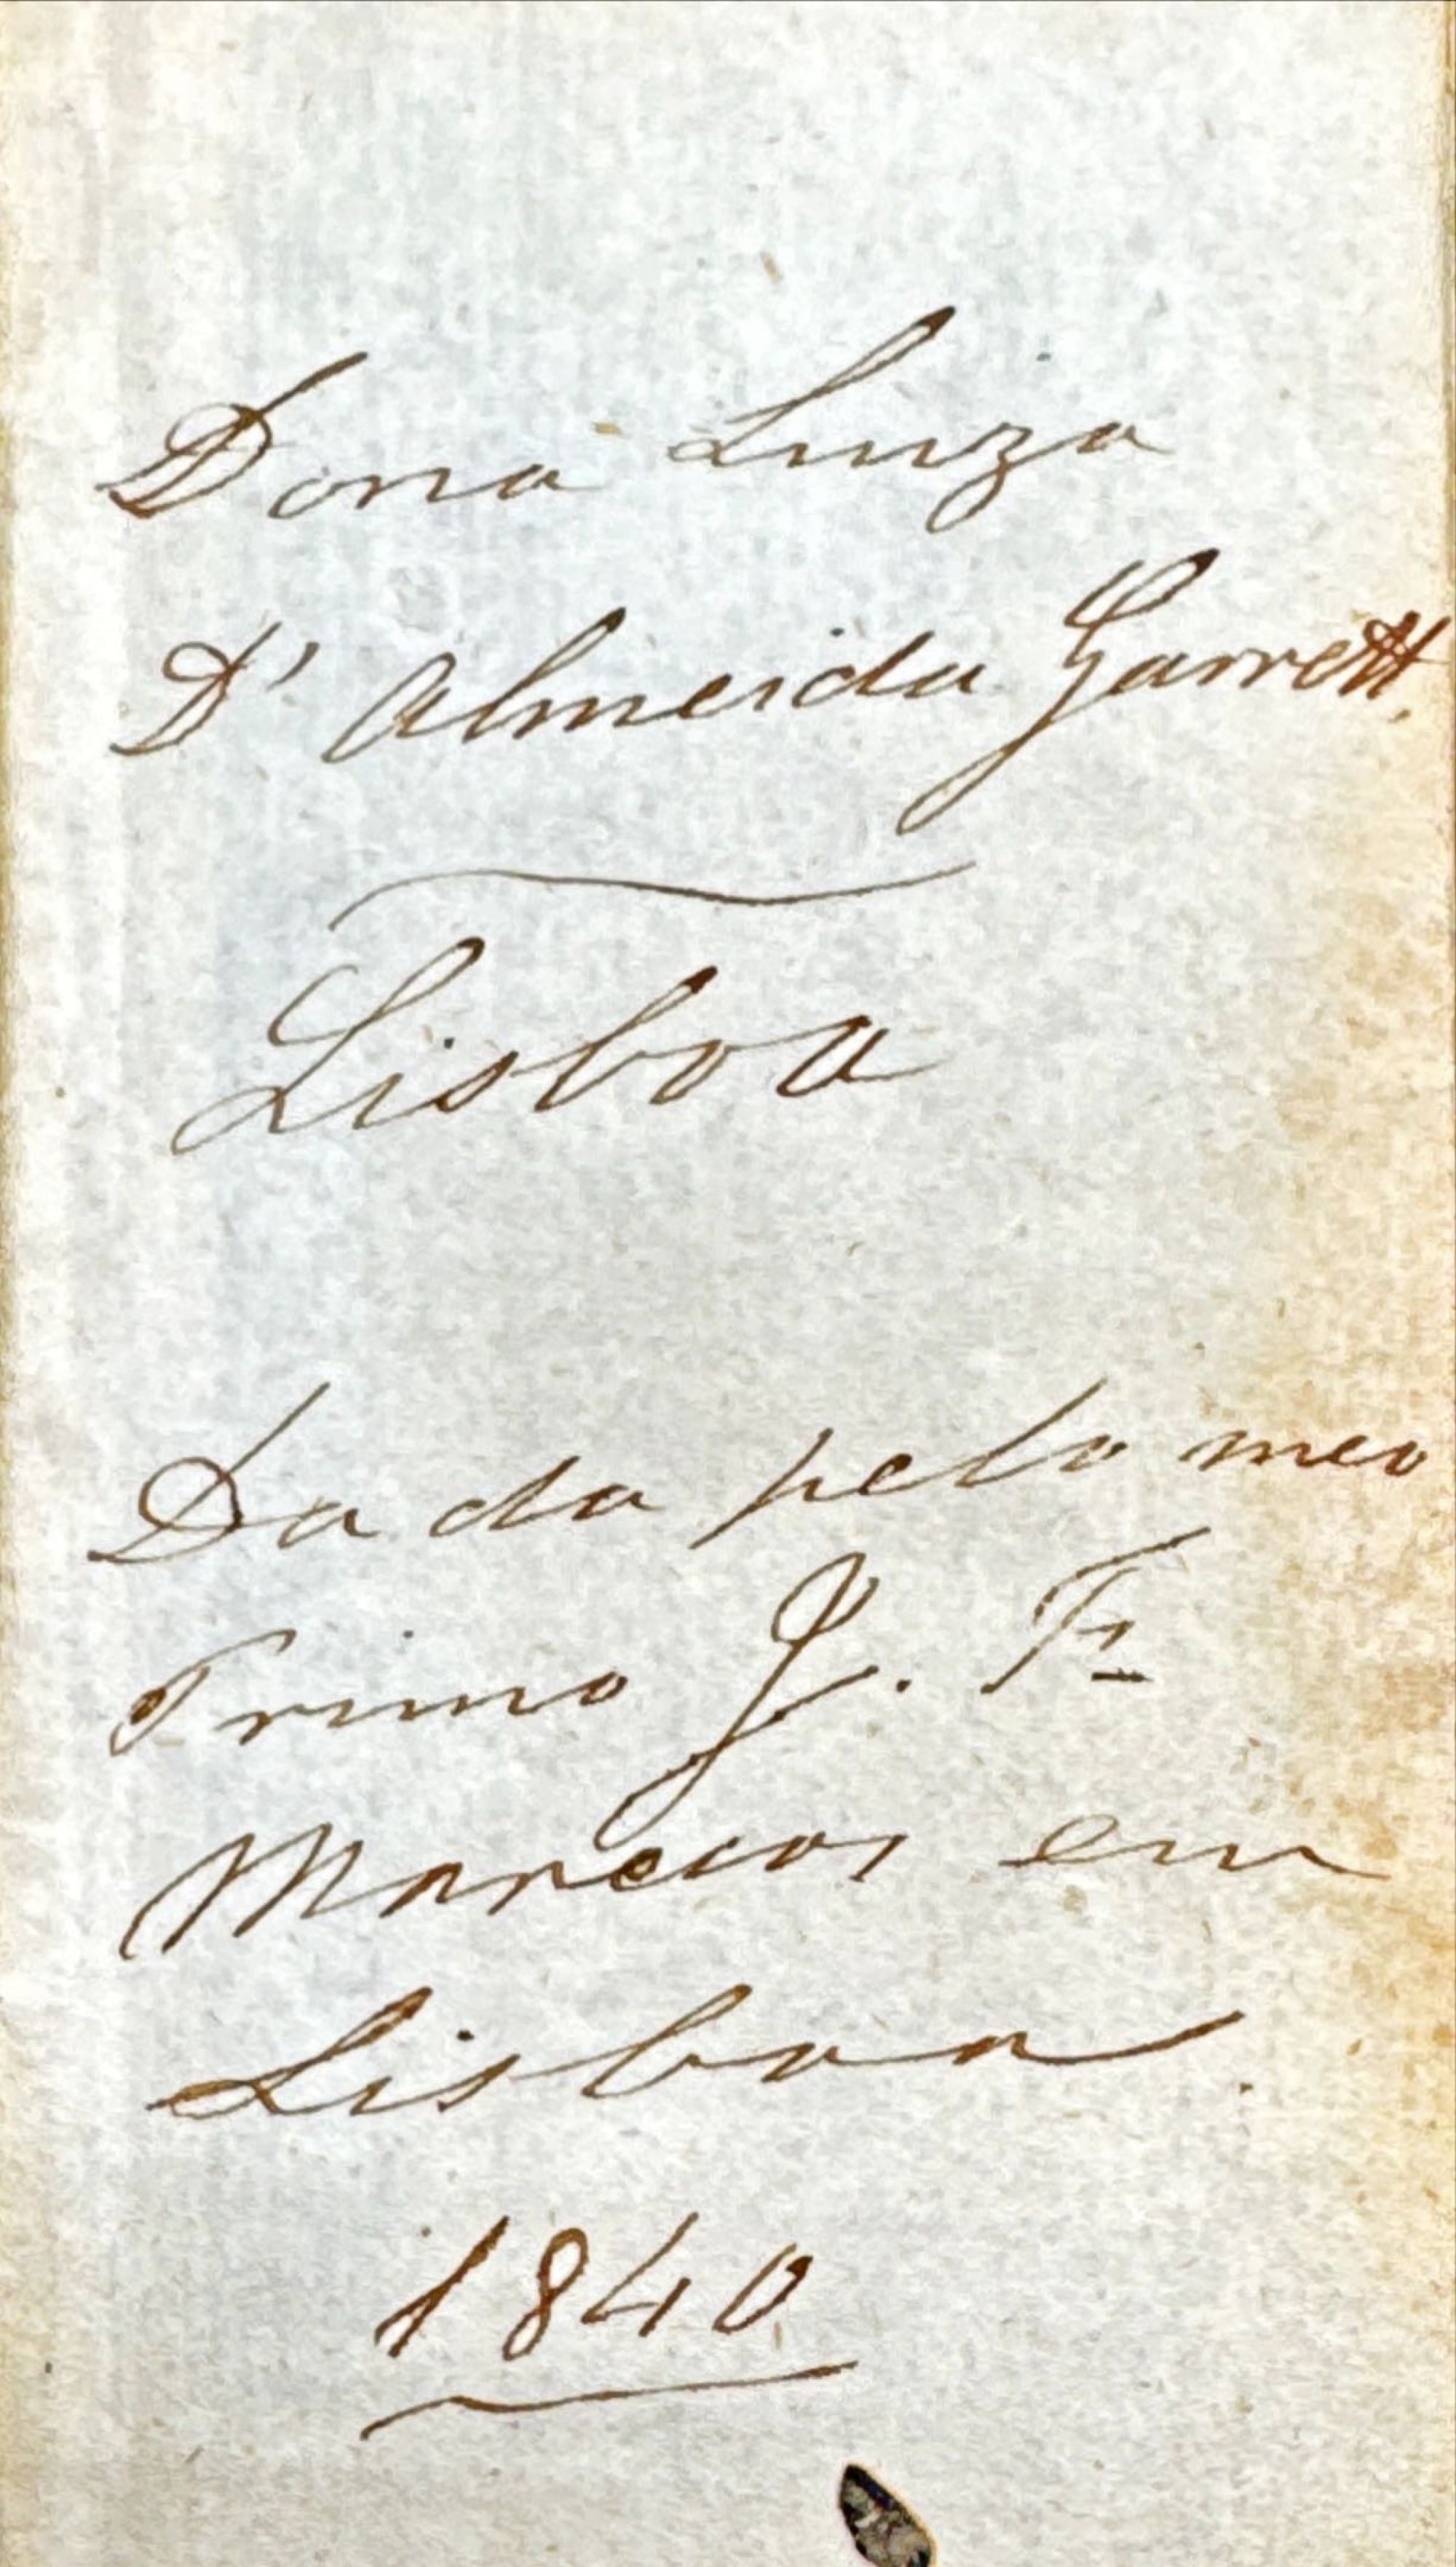 Dona Luiza
D' Almeida Garrett.
Lisboa
Dada pelo meo
Primo J. Fr
Marcos em
Lisboa.
1840